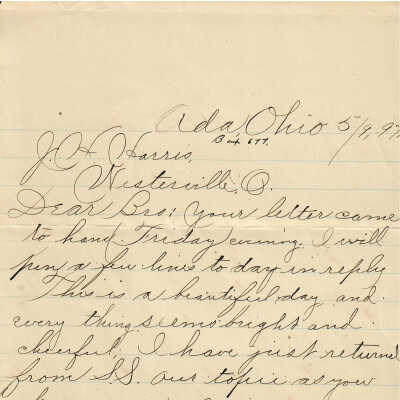 Ada, Ohio 5/9, 97.
B 4 677.
J. H. Harris,
Westerville, O.
Dear Bro: Your letter came
to hand Friday evening. I will
pen a few lines to day in reply
This is a beautiful day and
every thing seems bright and
cheerful. I have just returned
from S.S. our topic as you